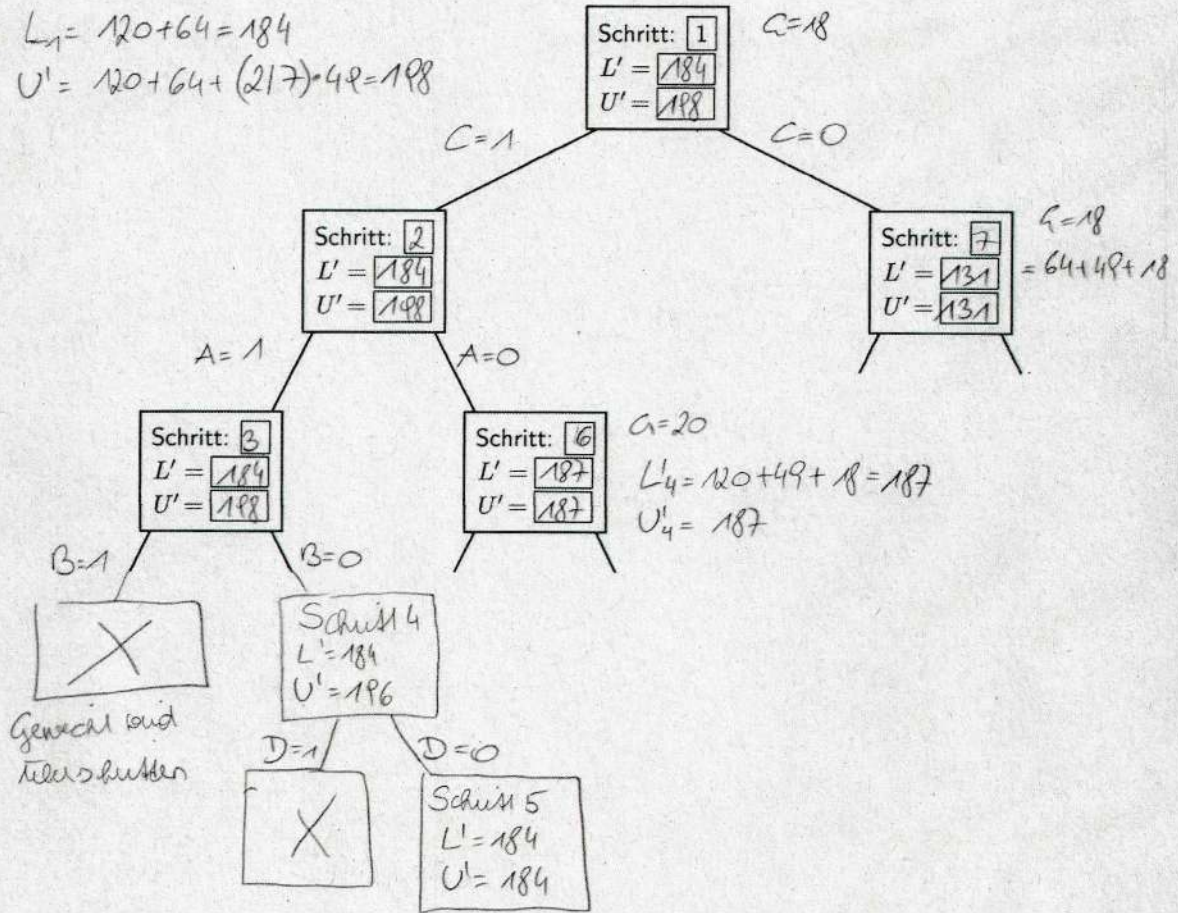 L₁ = 120+64 = 184
U' = 120+64+(2/7)·49=198
Schritt: 1
L' = 184
U' = 198
G=18
C=1
C=0
Schritt: 2
L' = 184
U' = 198
Schritt: 7
L' = 131
U' = 131
G=18
= 64+49+18
A=1
A=0
Schritt: 3
L' = 184
U' = 198
Schritt: 6
L' = 187
U' = 187
G=20
L'₄ = 120+49+18=187
U'₄ = 187
B=1
B=0
Schritt 4
L'=184
U'=196
Gewicht wird
D=1
D=0
Schritt 5
L'=184
U'=184